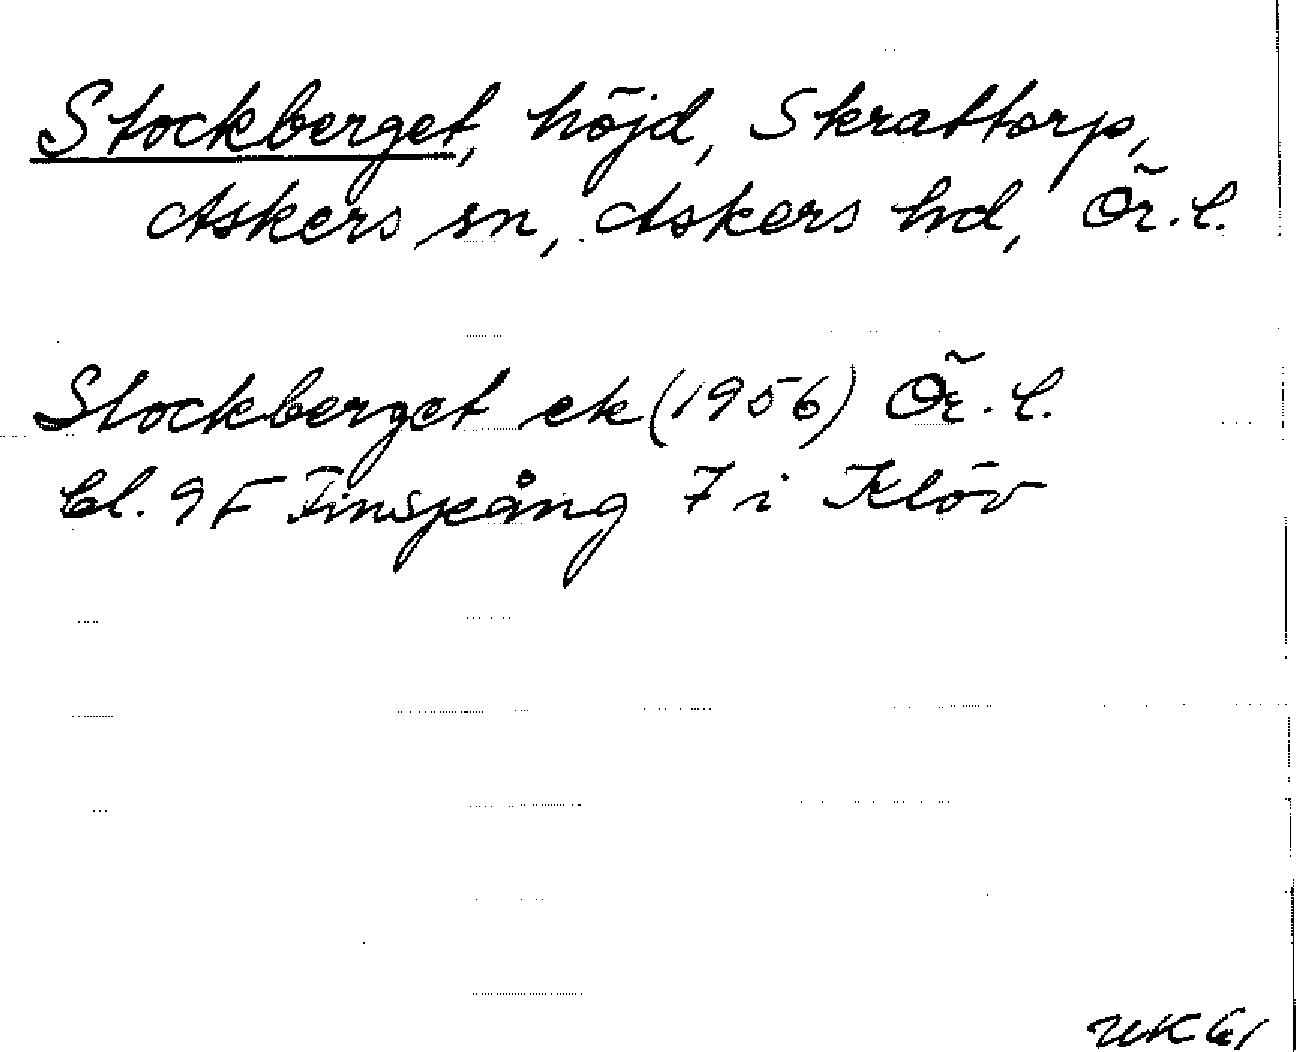 Stockberget, höjd, Skrattorp,
Askers sn, Askers hd, Ör. l.
Stockberget ek (1956) Ör. l.
bl. 9F Finspång 7 i Klöv
UK 61